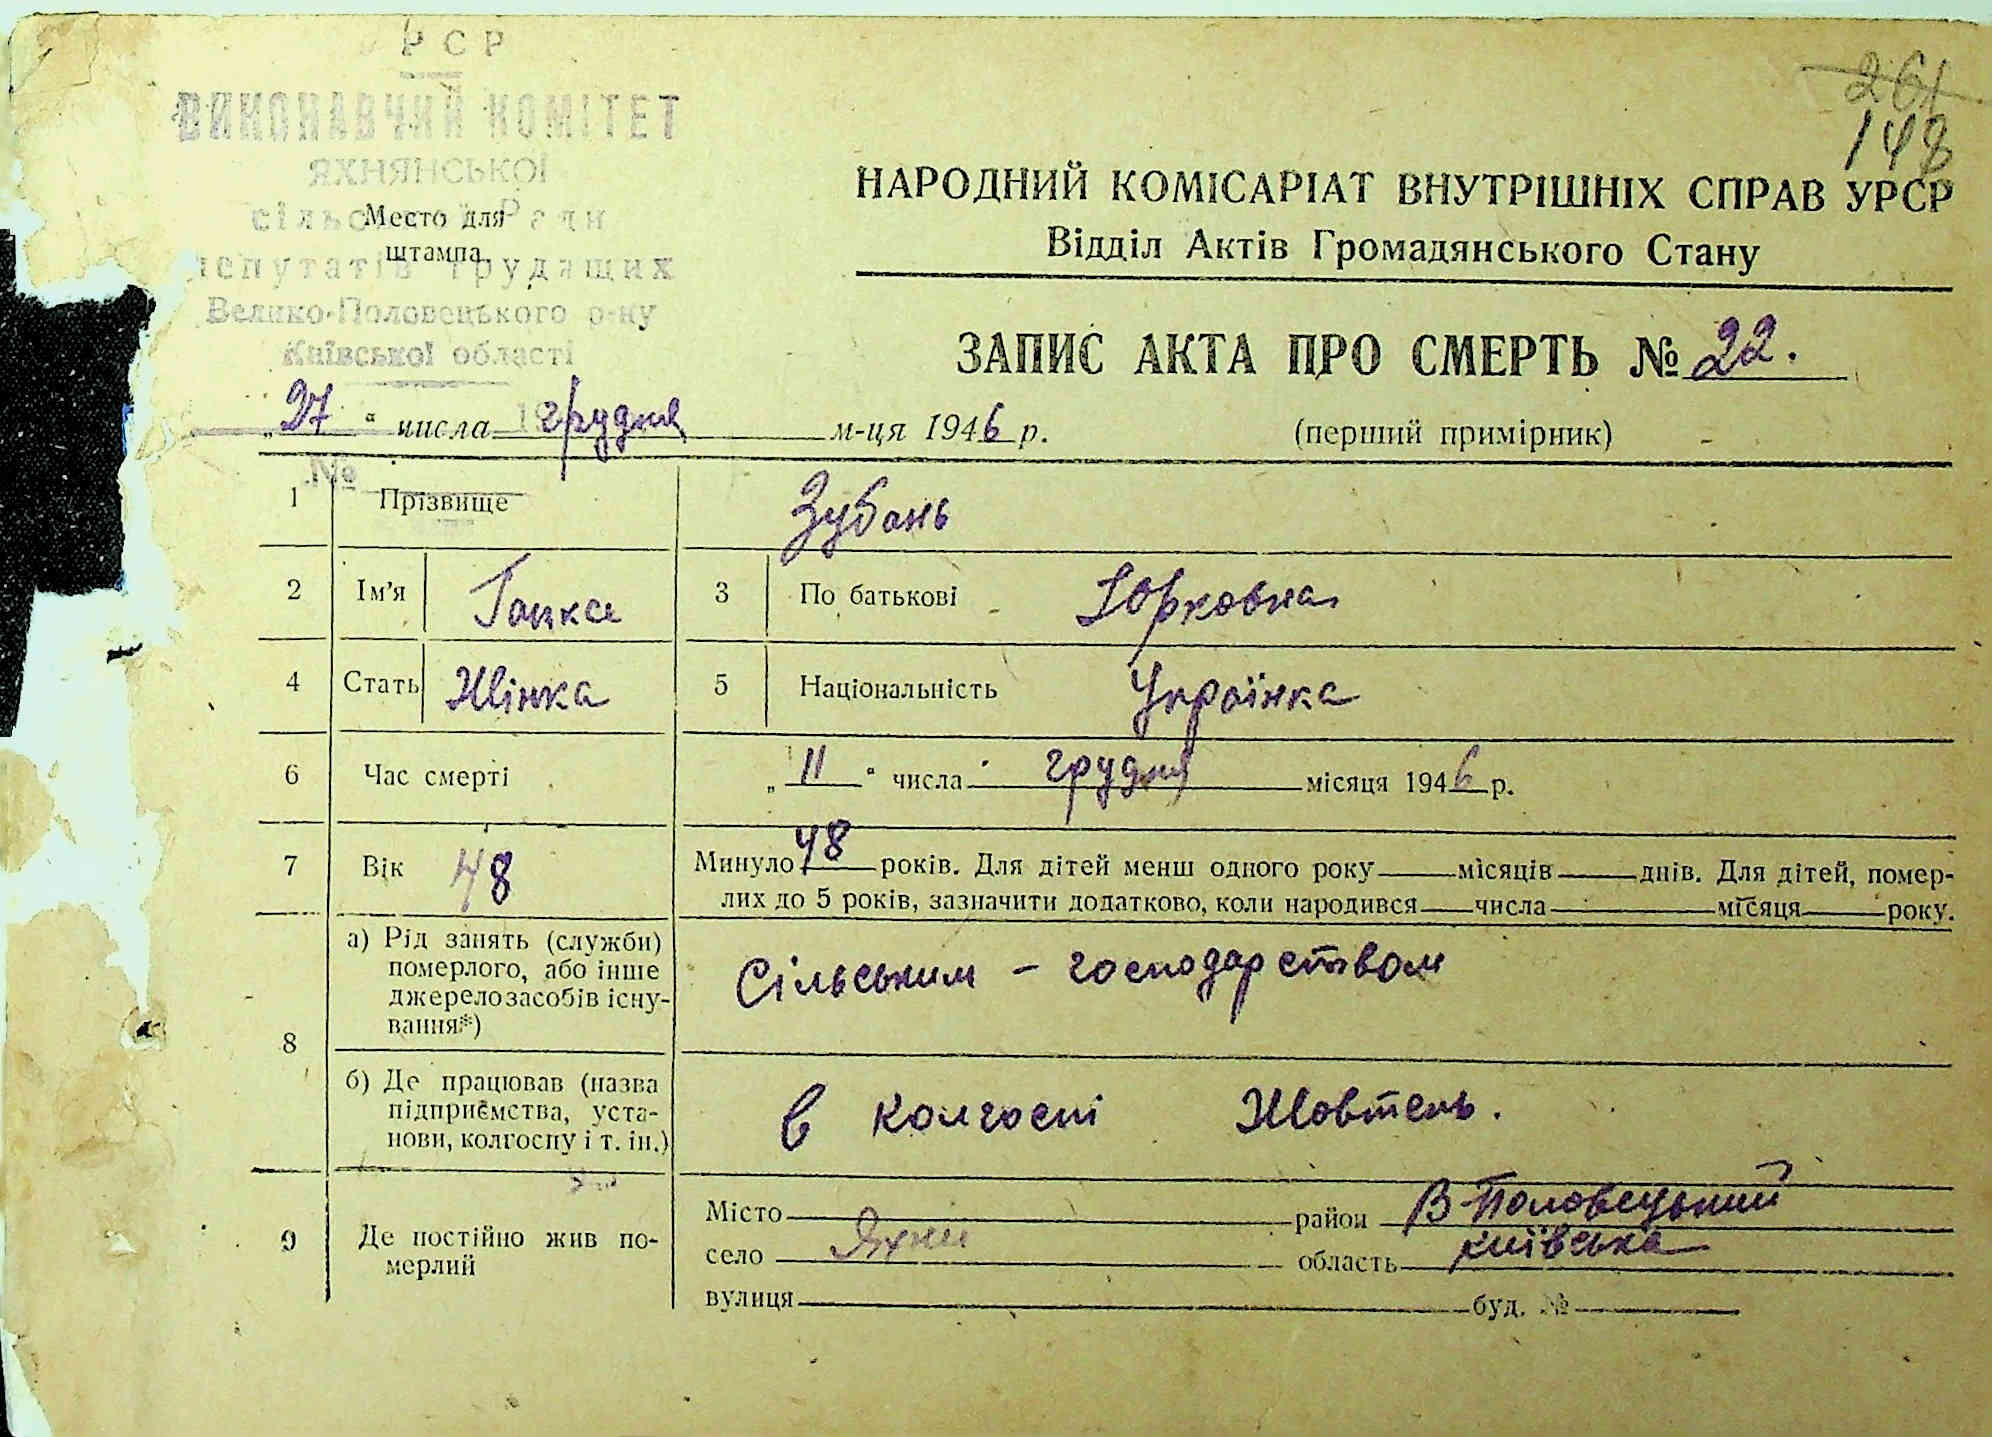 РСР
ВИКОНАВЧИЙ КОМІТЕТ
ЯХНЯНСЬКОЇ
сільської Ради
депутатів трудящих
Велико-Половецького р-ну
Київської області
Место для
штампа.
261
148
НАРОДНИЙ КОМІСАРІАТ ВНУТРІШНІХ СПРАВ УРСР
Відділ Актів Громадянського Стану
ЗАПИС АКТА ПРО СМЕРТЬ № 22.
„27“ числа грудня м-ця 1946 р. (перший примірник)
№
1 Прізвище Зубань
2 Ім'я Гапка 3 По батькові Юрковна
4 Стать Жінка 5 Національність Українка
6 Час смерті „11“ числа грудня місяця 1946 р.
7 Вік 48 Минуло 48 років. Для дітей менш одного року місяців днів. Для дітей, помер-
лих до 5 років, зазначити додатково, коли народився числа місяця року.
8 а) Рід занять (служби)
померлого, або інше
джерело засобів існу-
вання*)
Сільським - господарством
б) Де працював (назва
підприємства, уста-
нови, колгоспу і т. ін.)
в колгоспі Жовтень.
9 Де постійно жив по-
мерлий
Місто район В-Половецький
село Яхни область київська
вулиця буд. №